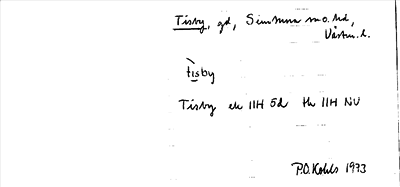 Tisby, gd, Simtuna sn o. hd,
Västm. l.
tisby
Tisby ek 11H 5d tk 11H NV
P.O. Kohls 1973